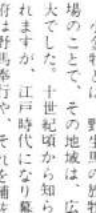 野生馬の放牧
場のことで、その地域は、広
大でした。十世紀頃から知ら
れますが、江戸時代になり幕
府は野馬奉行や、それを補佐